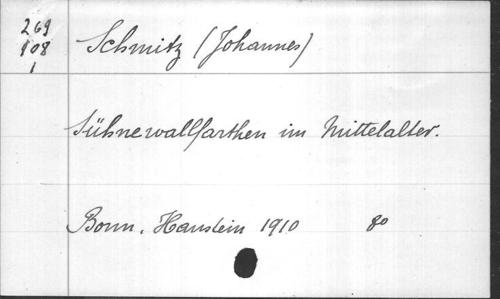 269
108
1
Schmitz (Johannes)
Sühnewallfarthen im Mittelalter.
Bonn, Hanstein 1910 8o